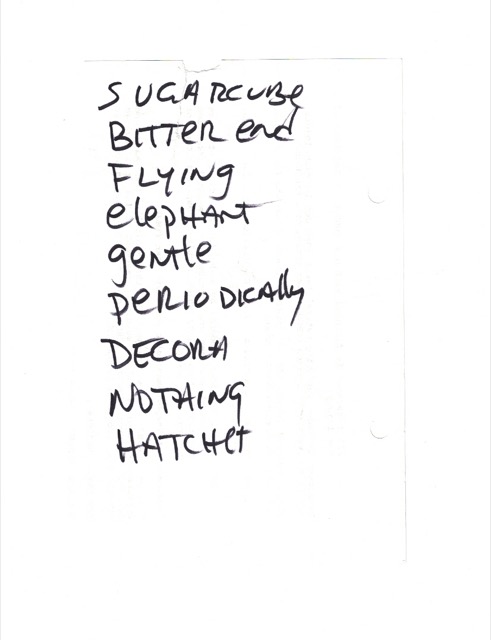 SUGARCUBE
BITTER end
FLYING
elepHANT
gentle
PERIODICAlly
DECORA
NOTHING
HATCHet